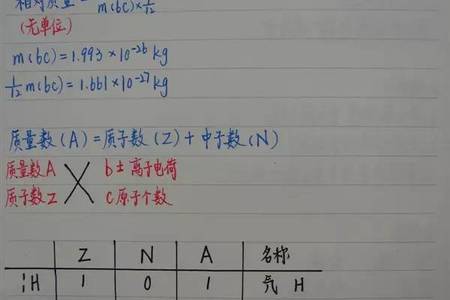 相对质量 = m(6c)×1/12
(无单位)
m(6c)=1.993×10⁻²⁶kg
1/12 m(6c)=1.661×10⁻²⁷kg
质量数(A)=质子数(Z)+中子数(N)
质量数A b± 离子电荷
质子数Z C原子个数
Z N A 名称
¹₁H 1 0 1 氕 H